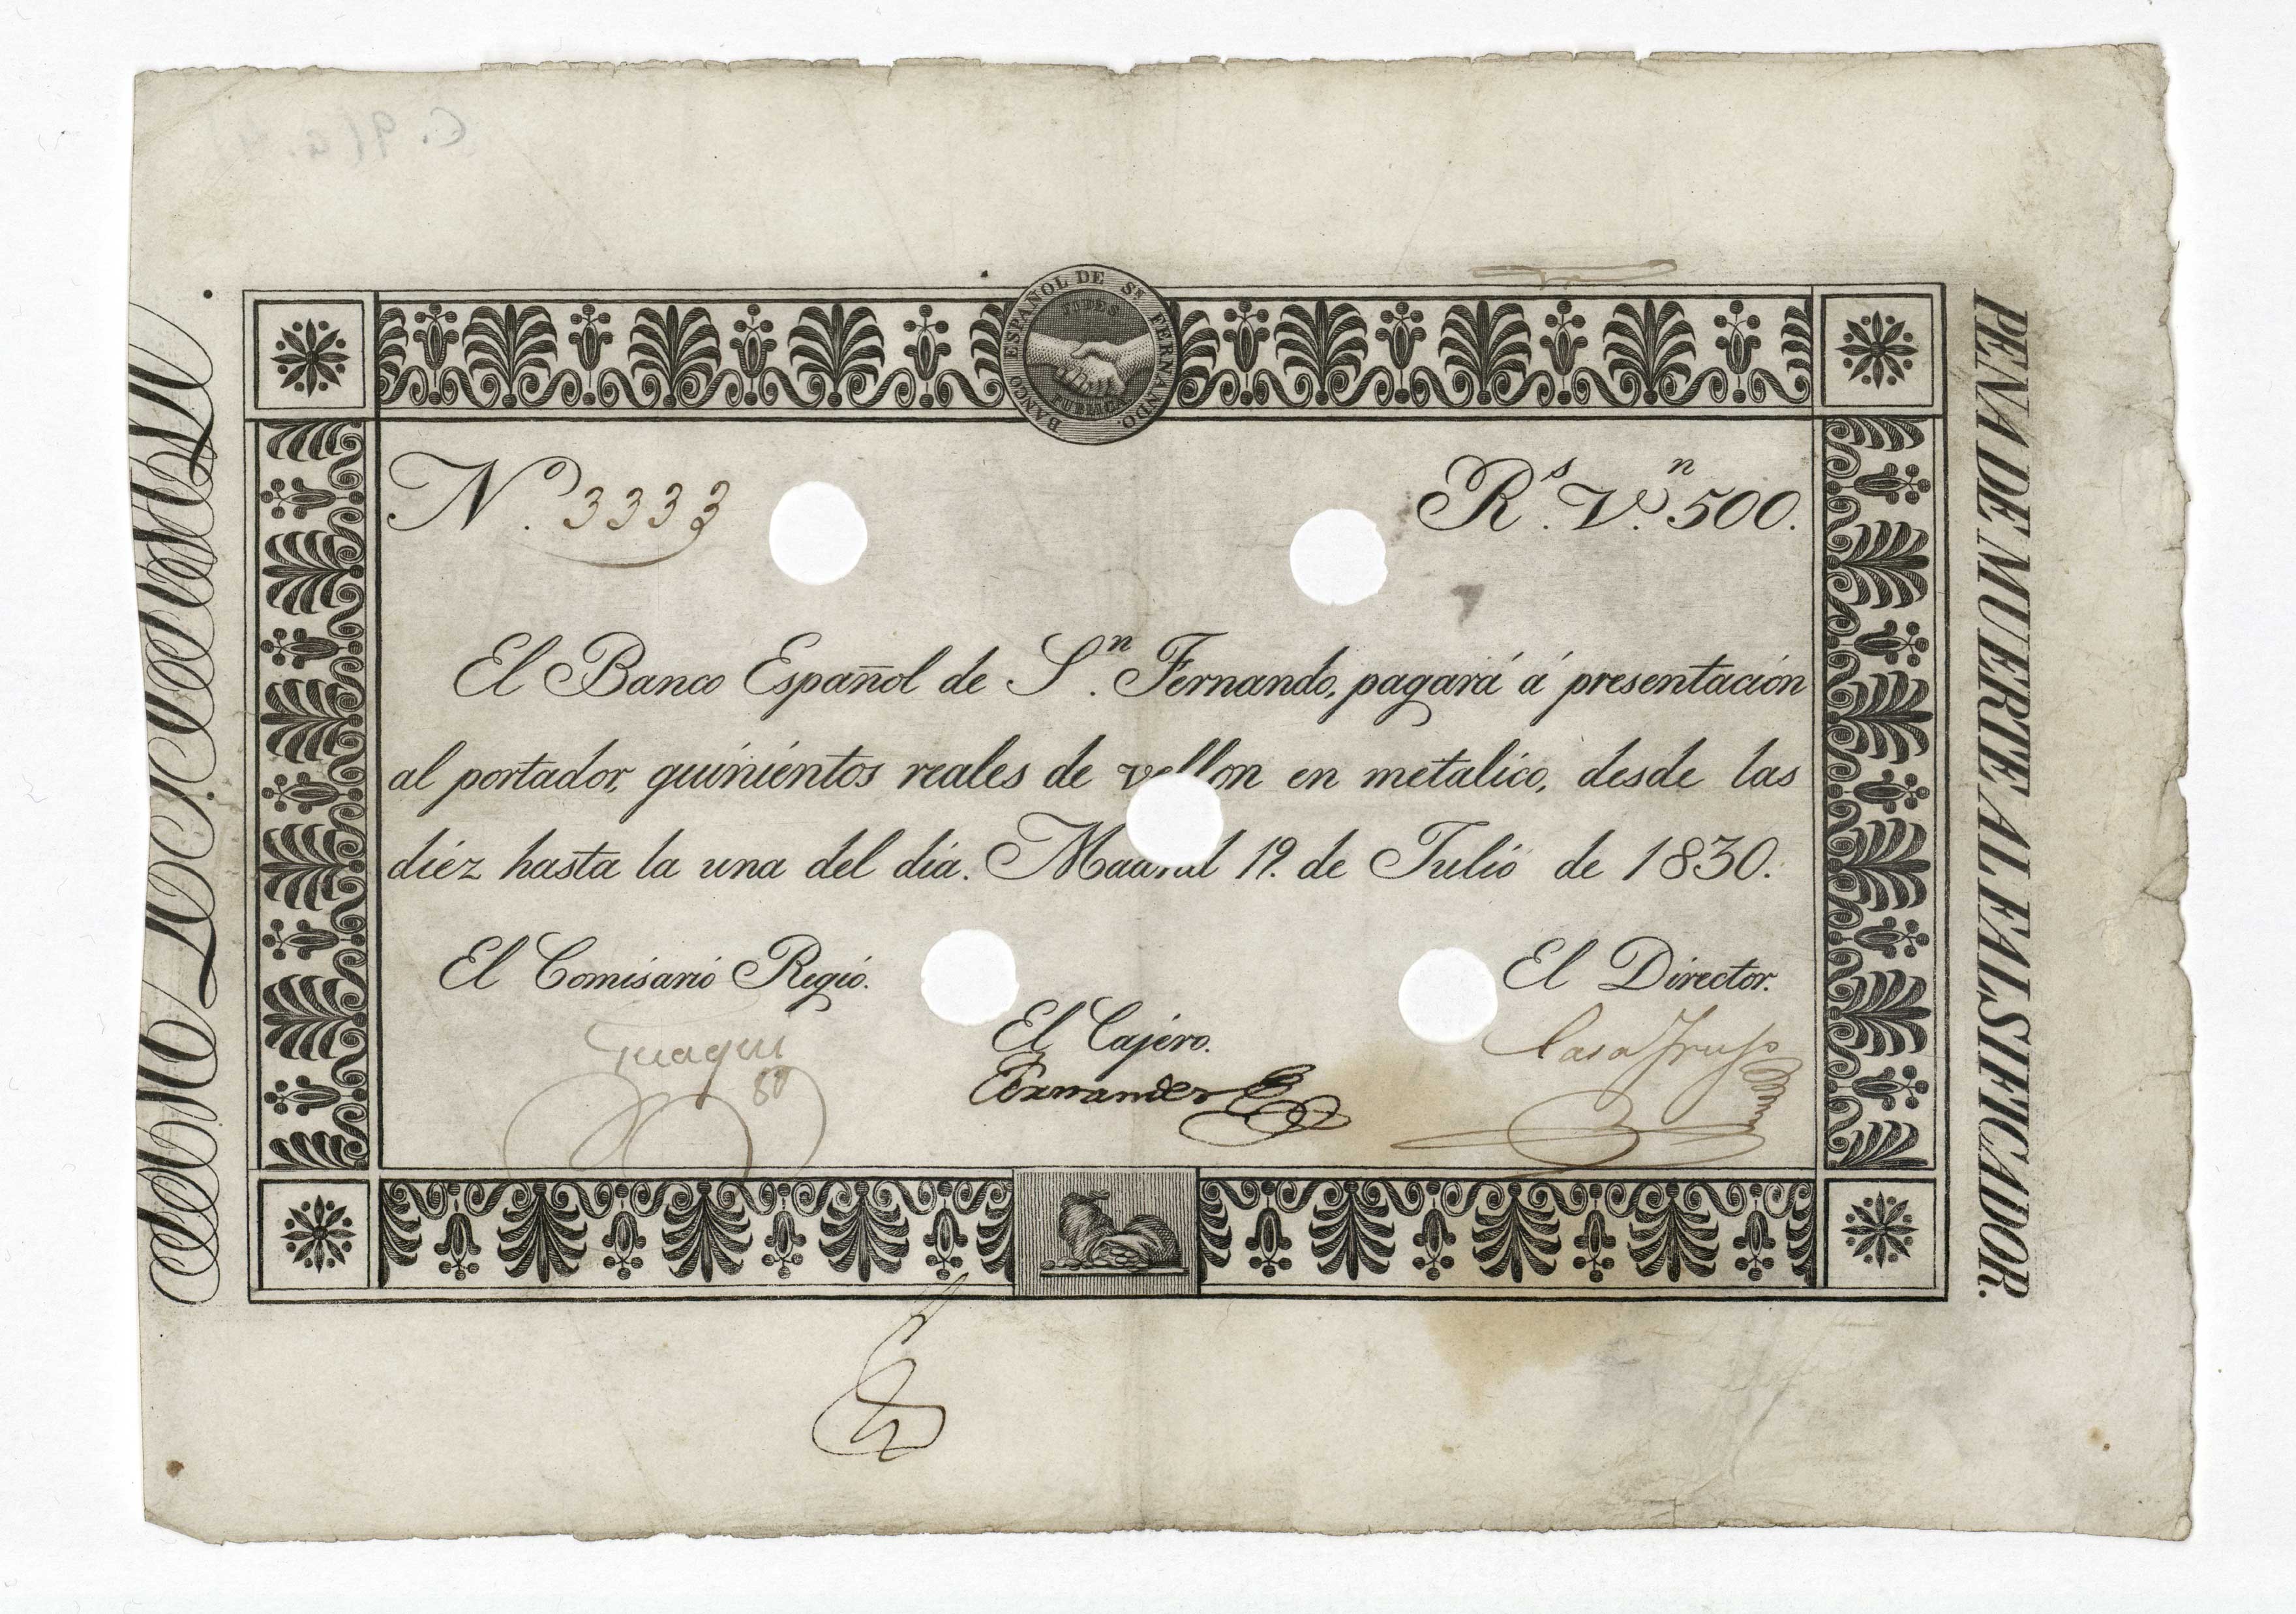 BANCO ESPAÑOL DE Sn FERNANDO.
FIDES
PUBLICA
No. 3333
Rs. Vn. 500.
El Banco Español de Sn. Fernando, pagará á presentación
al portador, quinientos reales de vellon en metalico, desde las
diez hasta la una del dia. Madrid 19. de Julio de 1830.
El Comisario Regio.
El Director.
El Cajero.
Fernandez
Casa Irujo
PENA DE MUERTE AL FALSIFICADOR.